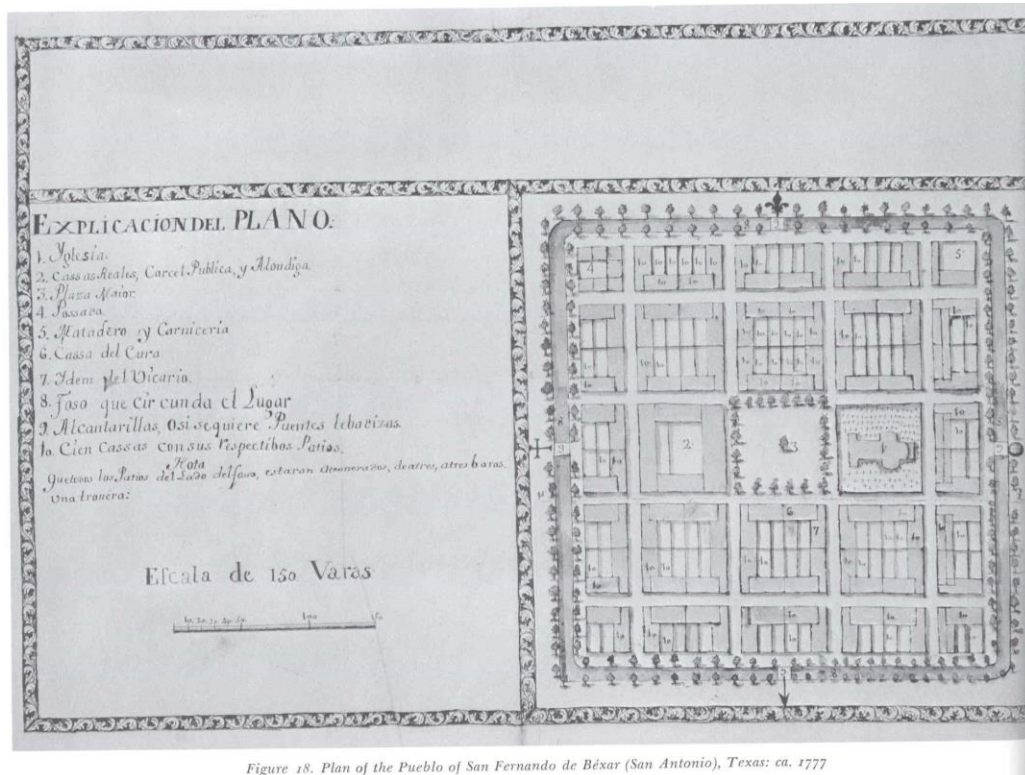 EXPLICACION DEL PLANO:
1. Yglesia.
2. Cassas Reales, Carcel Publica, y Alondiga.
3. Plaza Maior
4. Possada
5. Matadero y Carniceria
6. Cassa del Cura
7. Idem del Vicario.
8. Foso que circunda el Lugar
9. Alcantarillas, O si se quiere Puentes lebadizas.
10. Cien Cassas con sus Respectibos Patios.
Nota
Que todos los Patios del Lado del foso, estaran de atres, atres baras.
una tronera:
Escala de 150 Varas
10. 20. 30. 40. 50. 100 150
Figure 18. Plan of the Pueblo of San Fernando de Béxar (San Antonio), Texas: ca. 1777